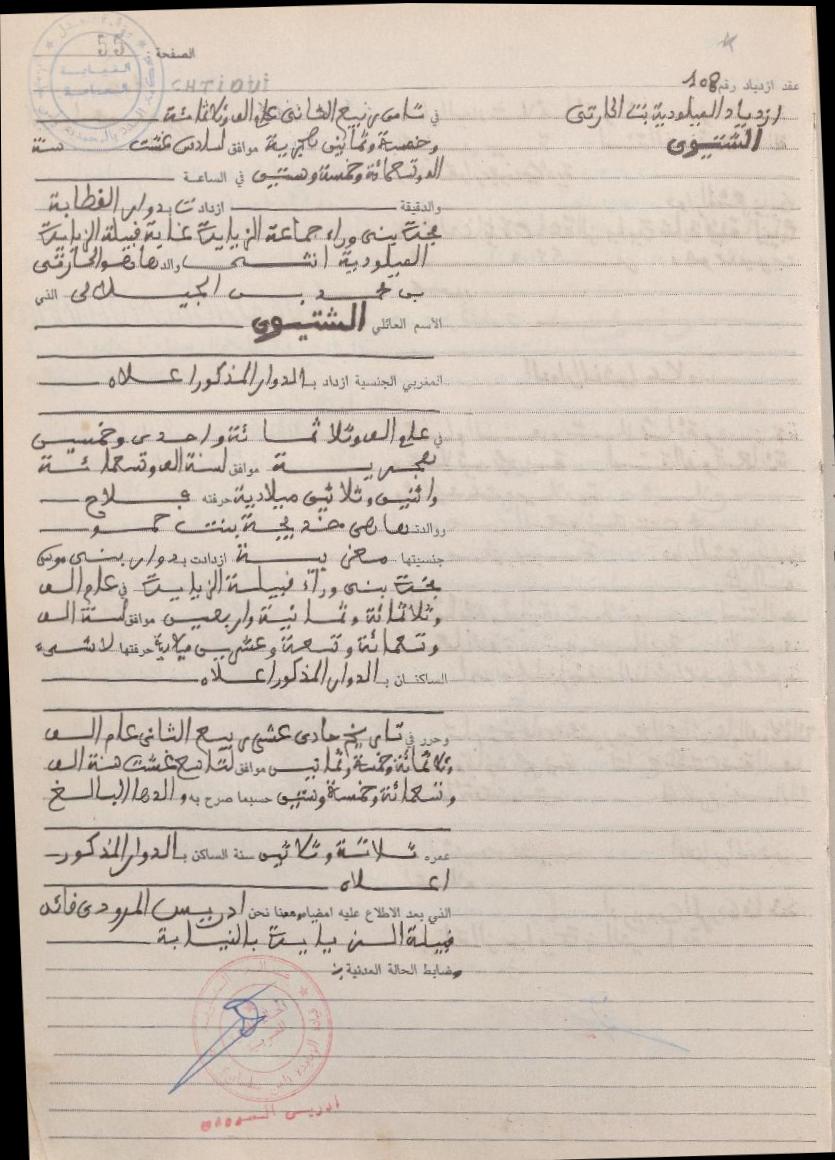 الصفحة : 55
CHTIOUI
عقد ازدياد رقم 108
ازدياد الميلودية بنت الحارتي
الشتيوي
في ثامن ربيع الثاني عام الف وثلاثمائة
وخمسة وثمانين هجرية موافق لسادس غشت سنة
الف وتسعمائة وخمسة وستين في الساعة
والدقيقة ازدادت بدوار الغطابة
فخذت بني وراء جماعة الزيايدة قبيلة الزيايدة
الميلودية انثى والدها هو الحارتي
بن محمد بن الجيلالي الذي
الاسم العائلي الشتيوي
المغربي الجنسية ازداد بالدوار المذكور اعلاه
في عام الف وثلاثمائة واحدى وخمسين
هجرية موافق لسنة الف وتسعمائة
واثنين وثلاثين ميلادية حرفته فلاح
ووالدتها هي خديجة بنت حمو
جنسيتها مغربية ازدادت بدوار بني موسى
فخذت بني وراء قبيلة الزيايدة في عام الف
وثلاثمائة وثمانية واربعين موافق لسنة الف
وتسعمائة وتسعة وعشرين ميلادية حرفتها لا شيء
الساكنان بالدوار المذكور اعلاه
وحرر في تاريخ حادي عشر ربيع الثاني عام الف
وثلاثمائة وخمسة وثمانين موافق لتاسع غشت سنة الف
وتسعمائة وخمسة وستين حسبما صرح به والدها البالغ
عمره ثلاثة وثلاثين سنة الساكن بالدوار المذكور
اعلاه
الذي بعد الاطلاع عليه امضياه معنا نحن ادريس المرودي قائد
قبيلة الزيايدة بالنيابة
وضابط الحالة المدنية
ادريس المرودي